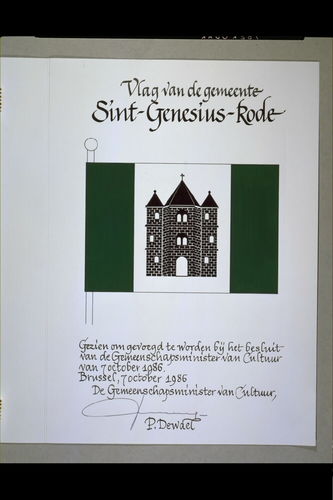 Vlag van de gemeente
Sint-Genesius-Rode
Gezien om gevoegd te worden bij het besluit
van de Gemeenschapsminister van Cultuur
van 7 october 1986.
Brussel, 7 october 1986
De Gemeenschapsminister van Cultuur,
P. Dewael